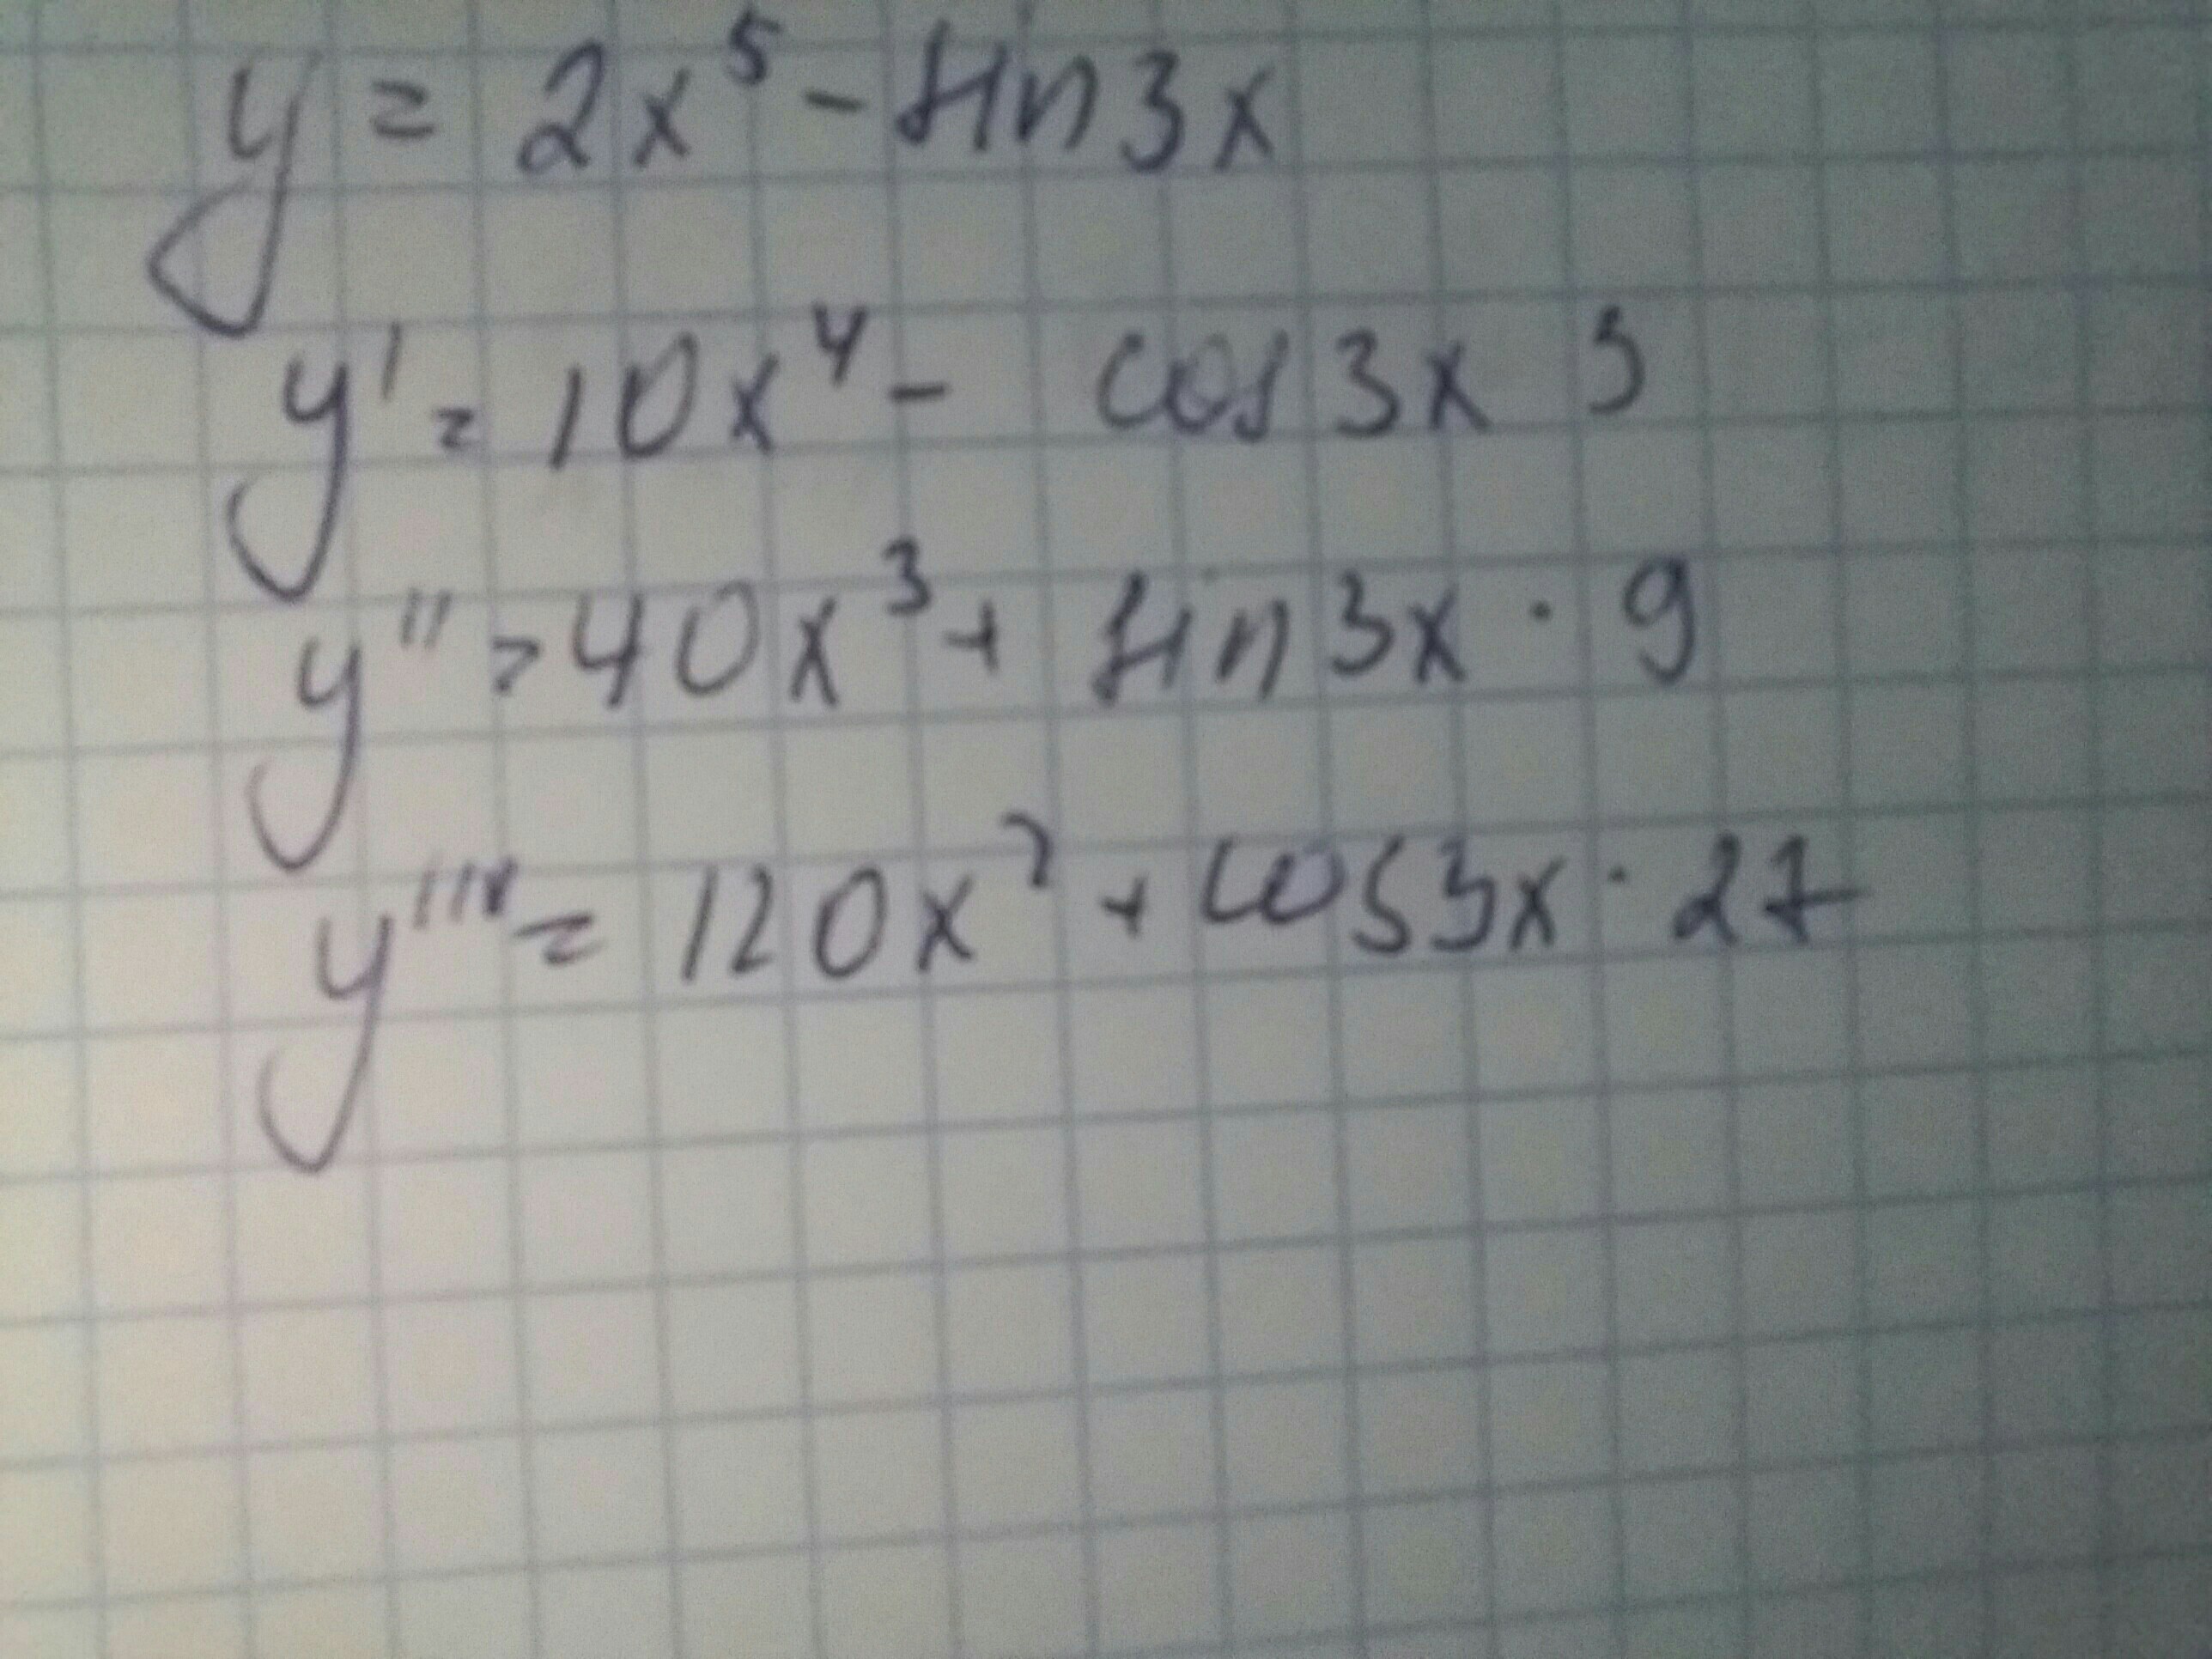 y = 2x⁵ - sin3x
y' = 10x⁴ - cos3x 3
y'' = 40x³ + sin3x · 9
y''' = 120x² + cos3x · 27